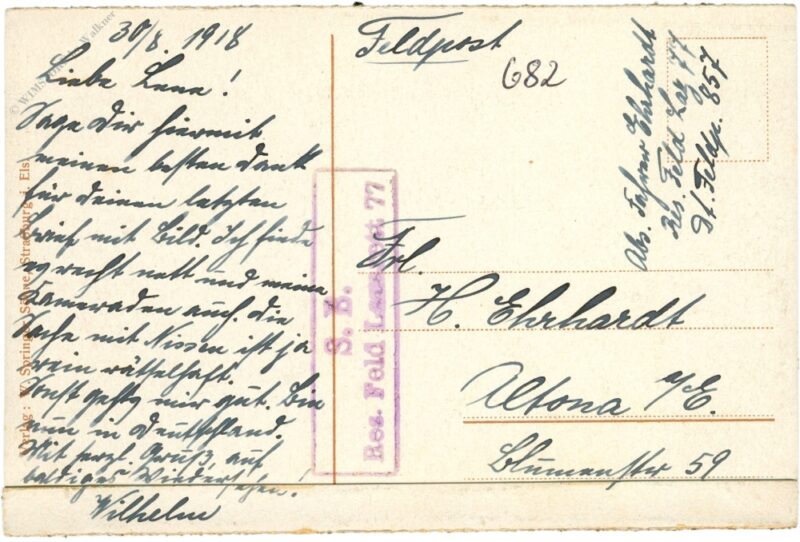 30/8. 1918
Liebe Lene!
Sage Dir hiermit
meinen besten Dank
für Deinen letzten
Brief mit Bild. Ich finde
es recht nett und meine
Kameraden auch. Die
Sache mit Nissen ist ja
rein rätselhaft.
Sonst geht's mir gut. Bin
nun in Deutschland.
Mit herzl. Gruß, auf
baldiges Wieder
sehen!
Wilhelm
Feldpost
682
Abs. Fahrer Ehrhardt
Res. Feld Laz 77
Dt. Feldp. 857
Frl.
H. Ehrhardt
Altona a/E.
Blumenstr 59
S. B.
Res. Feld Lazarett 77
Verlag: Springer Söhne, Strassburg i. Els
© Walkner